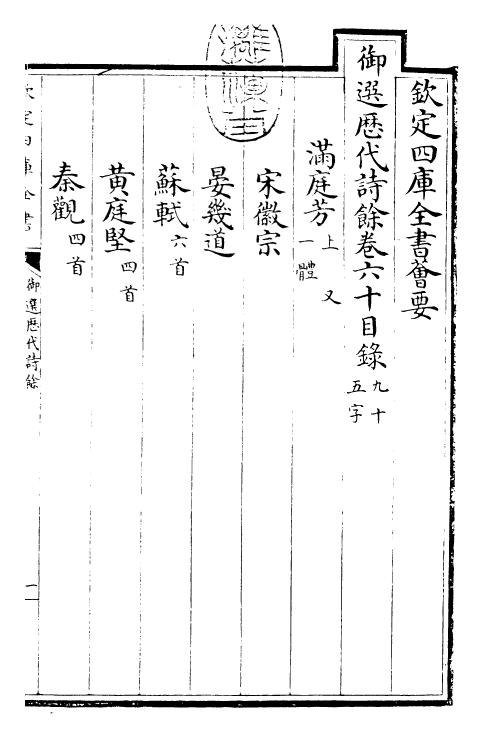 欽定四庫全書薈要
御選歷代詩餘卷六十目錄 九十五字
滿庭芳 上 又一體
宋徽宗
晏幾道
蘇軾 六首
黃庭堅 四首
秦觀 四首
欽定四庫全書
御選歷代詩餘
一